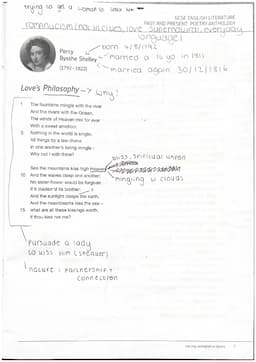 trying to get a woman to kiss him
GCSE ENGLISH LITERATURE
PAST AND PRESENT: POETRY ANTHOLOGY
romanticism (nature, love, supernatural, everyday
language)
born 4/8/1792
Percy
Bysshe Shelley
(1792–1822)
married a 16 yo in 1811
married again 30/12/1816
Love's Philosophy → why!
1 The fountains mingle with the river
And the rivers with the Ocean,
The winds of Heaven mix for ever
With a sweet emotion;
5 Nothing in the world is single;
All things by a law divine
In one another's being mingle -
Why not I with thine?
bliss, spiritual union
See the mountains kiss high Heaven
10 And the waves clasp one another;
mingling w clouds
No sister-flower would be forgiven
If it disdain'd its brother;
And the sunlight clasps the earth,
And the moonbeams kiss the sea -
15 what are all these kissings worth,
If thou kiss not me?
Pursuade a lady
to kiss him (speaker)
nature: partnership +
connection